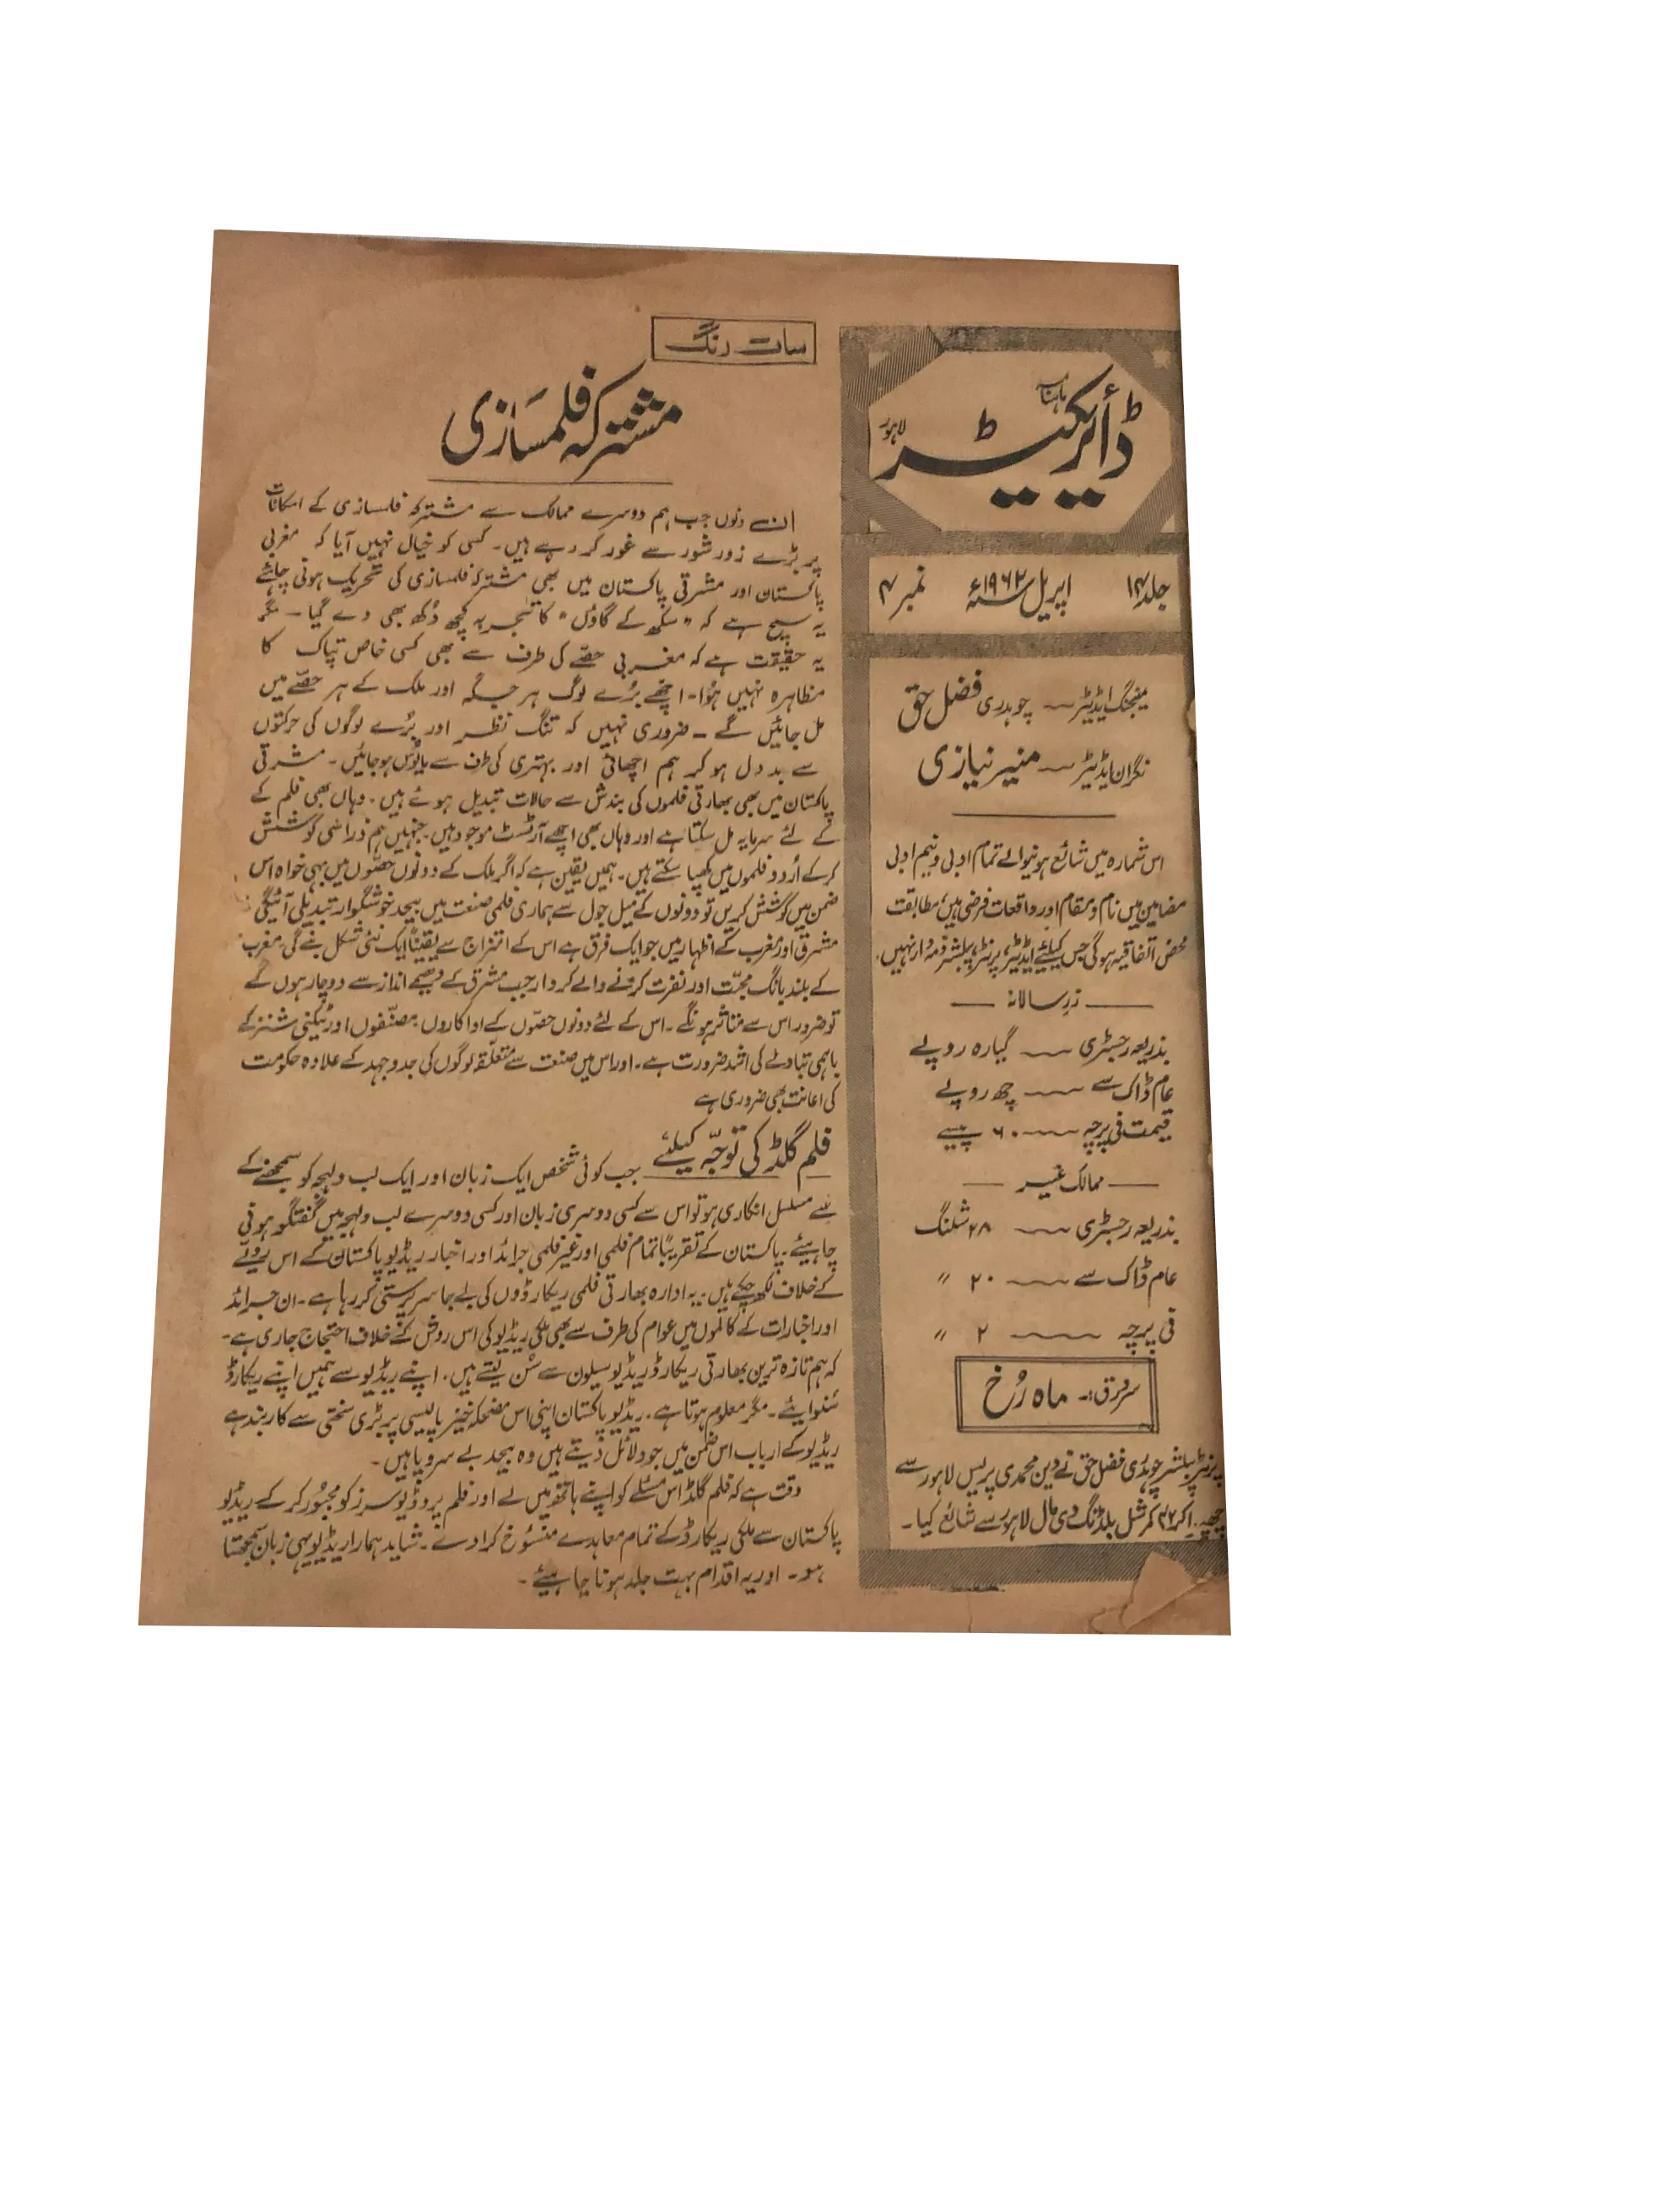 ماہنامہ
ڈائریکٹر
لاہور
جلد ۱۴ اپریل سنہ ۱۹۶۲ء نمبر ۴
مینجنگ ایڈیٹر — چوہدری فضل حق
نگران ایڈیٹر — منیر نیازی
اس شمارہ میں شائع ہونیوالے تمام ادبی و نیم ادبی
مضامین میں نام و مقام اور واقعات فرضی ہیں، مطابقت
محض اتفاقیہ ہوگی جس کیلئے ایڈیٹر، پرنٹر، پبلشر ذمہ دار نہیں۔
— زرِ سالانہ —
بذریعہ رجسٹری — گیارہ روپے
عام ڈاک سے — چھ روپے
قیمت فی پرچہ — ۶۰ پیسے
— ممالک غیر —
بذریعہ رجسٹری — ۲۸ شلنگ
عام ڈاک سے — ۲۰〃
فی پرچہ — ۲〃
سرورق:۔ ماہ رُخ
پرنٹر پبلشر چوہدری فضل حق نے دین محمدی پریس لاہور سے
چھپوا کر ۳۲ کمرشل بلڈنگ دی مال لاہور سے شائع کیا۔
سات رنگ
مشترکہ فلمسازی
ان دنوں جب ہم دوسرے ممالک سے مشترکہ فلمسازی کے امکانات
پر بڑے زور شور سے غور کر رہے ہیں۔ کسی کو خیال نہیں آیا کہ مغربی
پاکستان اور مشرقی پاکستان میں بھی مشترکہ فلمسازی کی تحریک ہونی چاہئے
یہ سچ ہے کہ "سکھ کے گاؤں" کا تجربہ کچھ دُکھ بھی دے گیا۔ مگر
یہ حقیقت ہے کہ مغربی حصّے کی طرف سے بھی کسی خاص تپاک کا
مظاہرہ نہیں ہُوا۔ اچھے بُرے لوگ ہر جگہ اور ملک کے ہر حصّے میں
مل جائیں گے۔ ضروری نہیں کہ تنگ نظر اور بُرے لوگوں کی حرکتوں
سے بد دل ہو کر ہم اچھائی اور بہتری کی طرف سے مایُوس ہو جائیں۔ مشرقی
پاکستان میں بھی بھارتی فلموں کی بندش سے حالات تبدیل ہوئے ہیں۔ وہاں بھی فلم کے
کے لئے سرمایہ مل سکتا ہے اور وہاں بھی اچھے آرٹسٹ موجود ہیں۔ جنہیں ہم ذرا سی کوشش
کر کے اُردو فلموں میں کھپا سکتے ہیں۔ ہمیں یقین ہے کہ اگر ملک کے دونوں حصّوں میں بہی خواہ اس
ضمن میں کوشش کریں تو دونوں کے میل جول سے ہماری فلمی صنعت میں بیحد خوشگوار تبدیلی آئیگی
مشرق اور مغرب کے اظہار میں جو ایک فرق ہے اس کے امتزاج سے یقیناً ایک نئی شکل بنے گی۔ مغرب
کے بلند بانگ محبّت اور نفرت کرنے والے کردار جب مشرق کے دھیمے انداز سے دوچار ہوں گے
تو ضرور اس سے متاثر ہونگے۔ اس کے لئے دونوں حصّوں کے اداکاروں، مصنّفوں اور ٹیکنی شنز کے
باہمی تبادلے کی اشد ضرورت ہے۔ اور اس میں صنعت سے متعلّقہ لوگوں کی جدوجہد کے علاوہ حکومت
کی اعانت بھی ضروری ہے
فلم گلڈ کی توجّہ کیلئے جب کوئی شخص ایک زبان اور ایک لب و لہجہ کو سمجھنے کے
سے مسلسل انکاری ہو تو اس سے کسی دوسری زبان اور کسی دوسرے لب و لہجہ میں گفتگو ہونی
چاہیئے۔ پاکستان کے تقریباً تمام فلمی اور غیر فلمی جرائد اور اخبار ریڈیو پاکستان کے اس رویّے
کے خلاف لکھ چکے ہیں۔ یہ ادارہ بھارتی فلمی ریکارڈوں کی بے جا سرپرستی کر رہا ہے۔ ان جرائد
اور اخبارات کے کالموں میں عوام کی طرف سے بھی ملکی ریڈیو کی اس روش کے خلاف احتجاج جاری ہے۔
کہ ہم تازہ ترین بھارتی ریکارڈ ریڈیو سیلون سے سُن لیتے ہیں۔ اپنے ریڈیو سے ہمیں اپنے ریکارڈ
سُنوایئے۔ مگر معلوم ہوتا ہے۔ ریڈیو پاکستان اپنی اس مضحکہ خیز پالیسی پر بڑی سختی سے کاربند ہے
ریڈیو کے ارباب اس ضمن میں جو دلائل دیتے ہیں وہ بیحد بے سروپا ہیں۔
وقت ہے کہ فلم گلڈ اس مسئلے کو اپنے ہاتھ میں لے اور فلم پروڈیوسرز کو مجبُور کر کے ریڈیو
پاکستان سے ملکی ریکارڈ کے تمام معاہدے منسُوخ کرا دے۔ شاید ہمارا ریڈیو یہی زبان سمجھتا
ہو۔ اور یہ اقدام بہت جلد ہونا چاہیئے۔